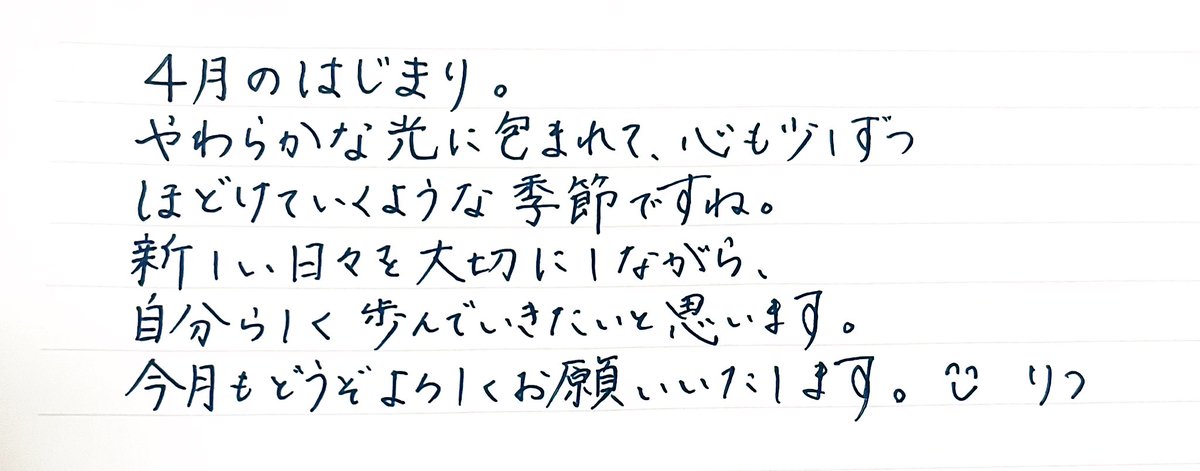 4月のはじまり。
やわらかな光に包まれて、心も少しずつ
ほどけていくような季節ですね。
新しい日々を大切にしながら、
自分らしく歩んでいきたいと思います。
今月もどうぞよろしくお願いいたします。 りつ